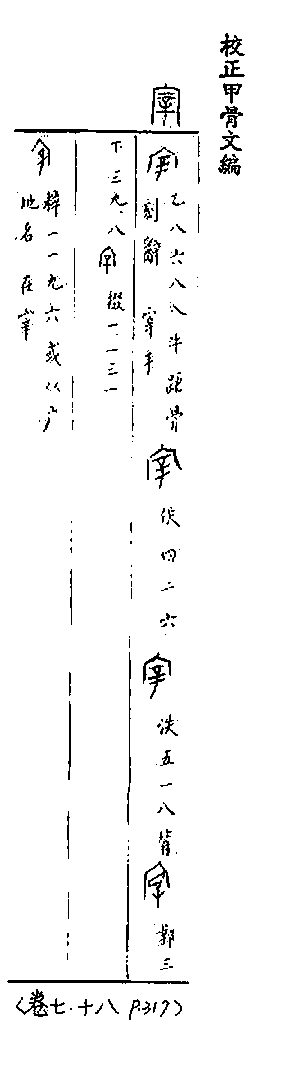 校正甲骨文編
宰
乙八六八八牛距骨刻辭 宰丰 佚四二六 佚五一八背 鄴三
下三九.八 掇一.一三一
粹一一九六或从广
地名 在宰
(卷七.十八 P.317)